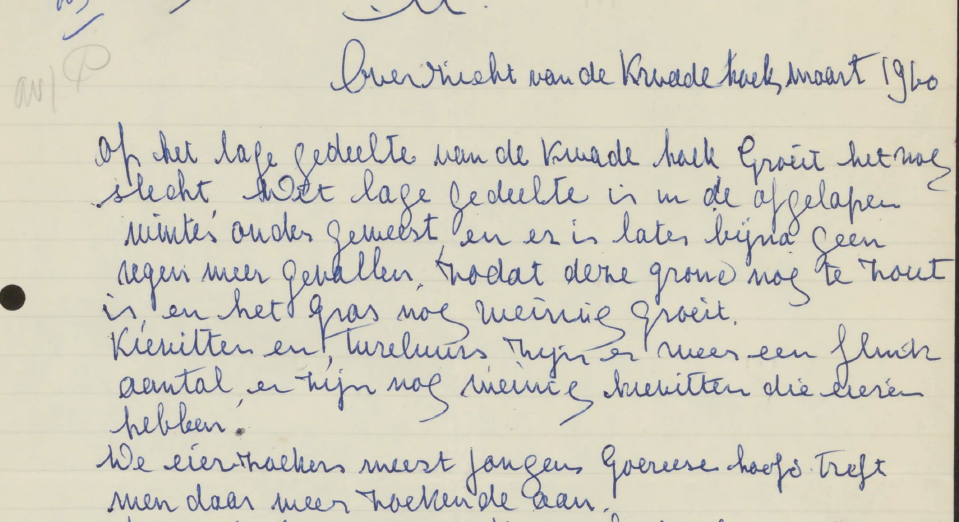 Overzicht van de Kwade hoek, maart 1960
Op het lage gedeelte van de Kwade hoek Groeit het nog
slecht Het lage gedeelte is in de afgelapen
winter onder geweest, en er is later bijna geen
regen meer gevallen, zodat deze grond nog te zout
is, en het Gras nog weinig groeit.
Kievitten en, tureluurs zijn er weer een flink
aantal, er zijn nog weinig kievitten die eieren
hebben.
We eierzoekers meest jongens Goereese hoofd treft
men daar weer zoekende aan.